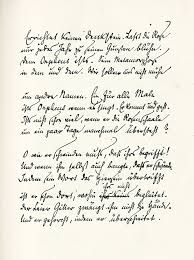 7
Errichtet keinen Denkstein. Laßt die Rose
nur jedes Jahr zu seinen Gunsten blühn.
Denn Orpheus ists. Seine Metamorphose
in dem und dem. Wir sollen uns nicht mühn
um andre Namen. Ein für alle Male
ists Orpheus wenn es singt. Er kommt und geht.
Ists nicht schon viel, wenn er die Rosenschale
um ein paar Tage manchmal übersteht?
O wie er schwinden muß, daß ihrs begrifft!
Und wenn ihm selbst auch bangte, daß er schwände.
Indem sein Wort das Hiersein übertrifft,
ist er schon dort, wohin ihrs nicht begleitet.
Der Leier Gitter zwängt ihm nicht die Hände.
Und er gehorcht, indem er überschreitet.